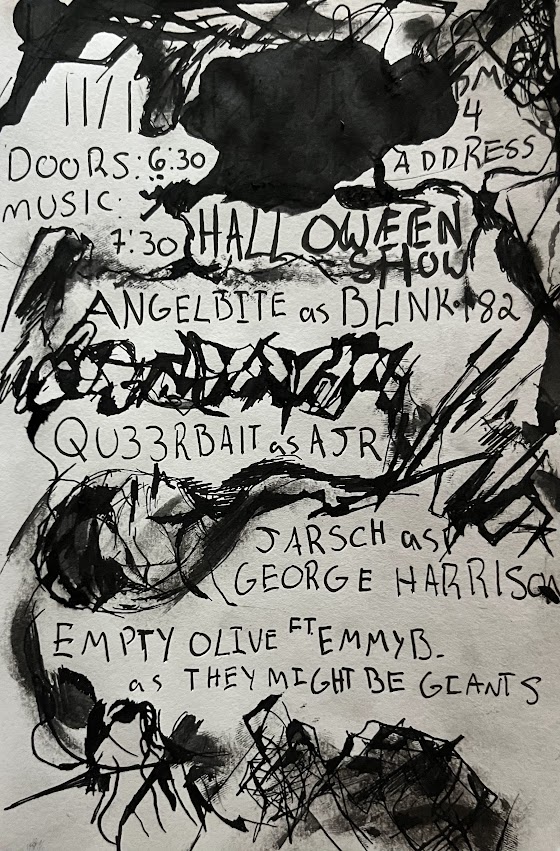 11/1
DM
4
ADDRESS
DOORS: 6:30
MUSIC:
7:30
HALLOWEEN
SHOW
ANGELBITE as BLINK-182
QU33RBAIT as AJR
JARSCH as
GEORGE HARRISON
EMPTY OLIVE FT. EMMY B.
as THEY MIGHT BE GIANTS